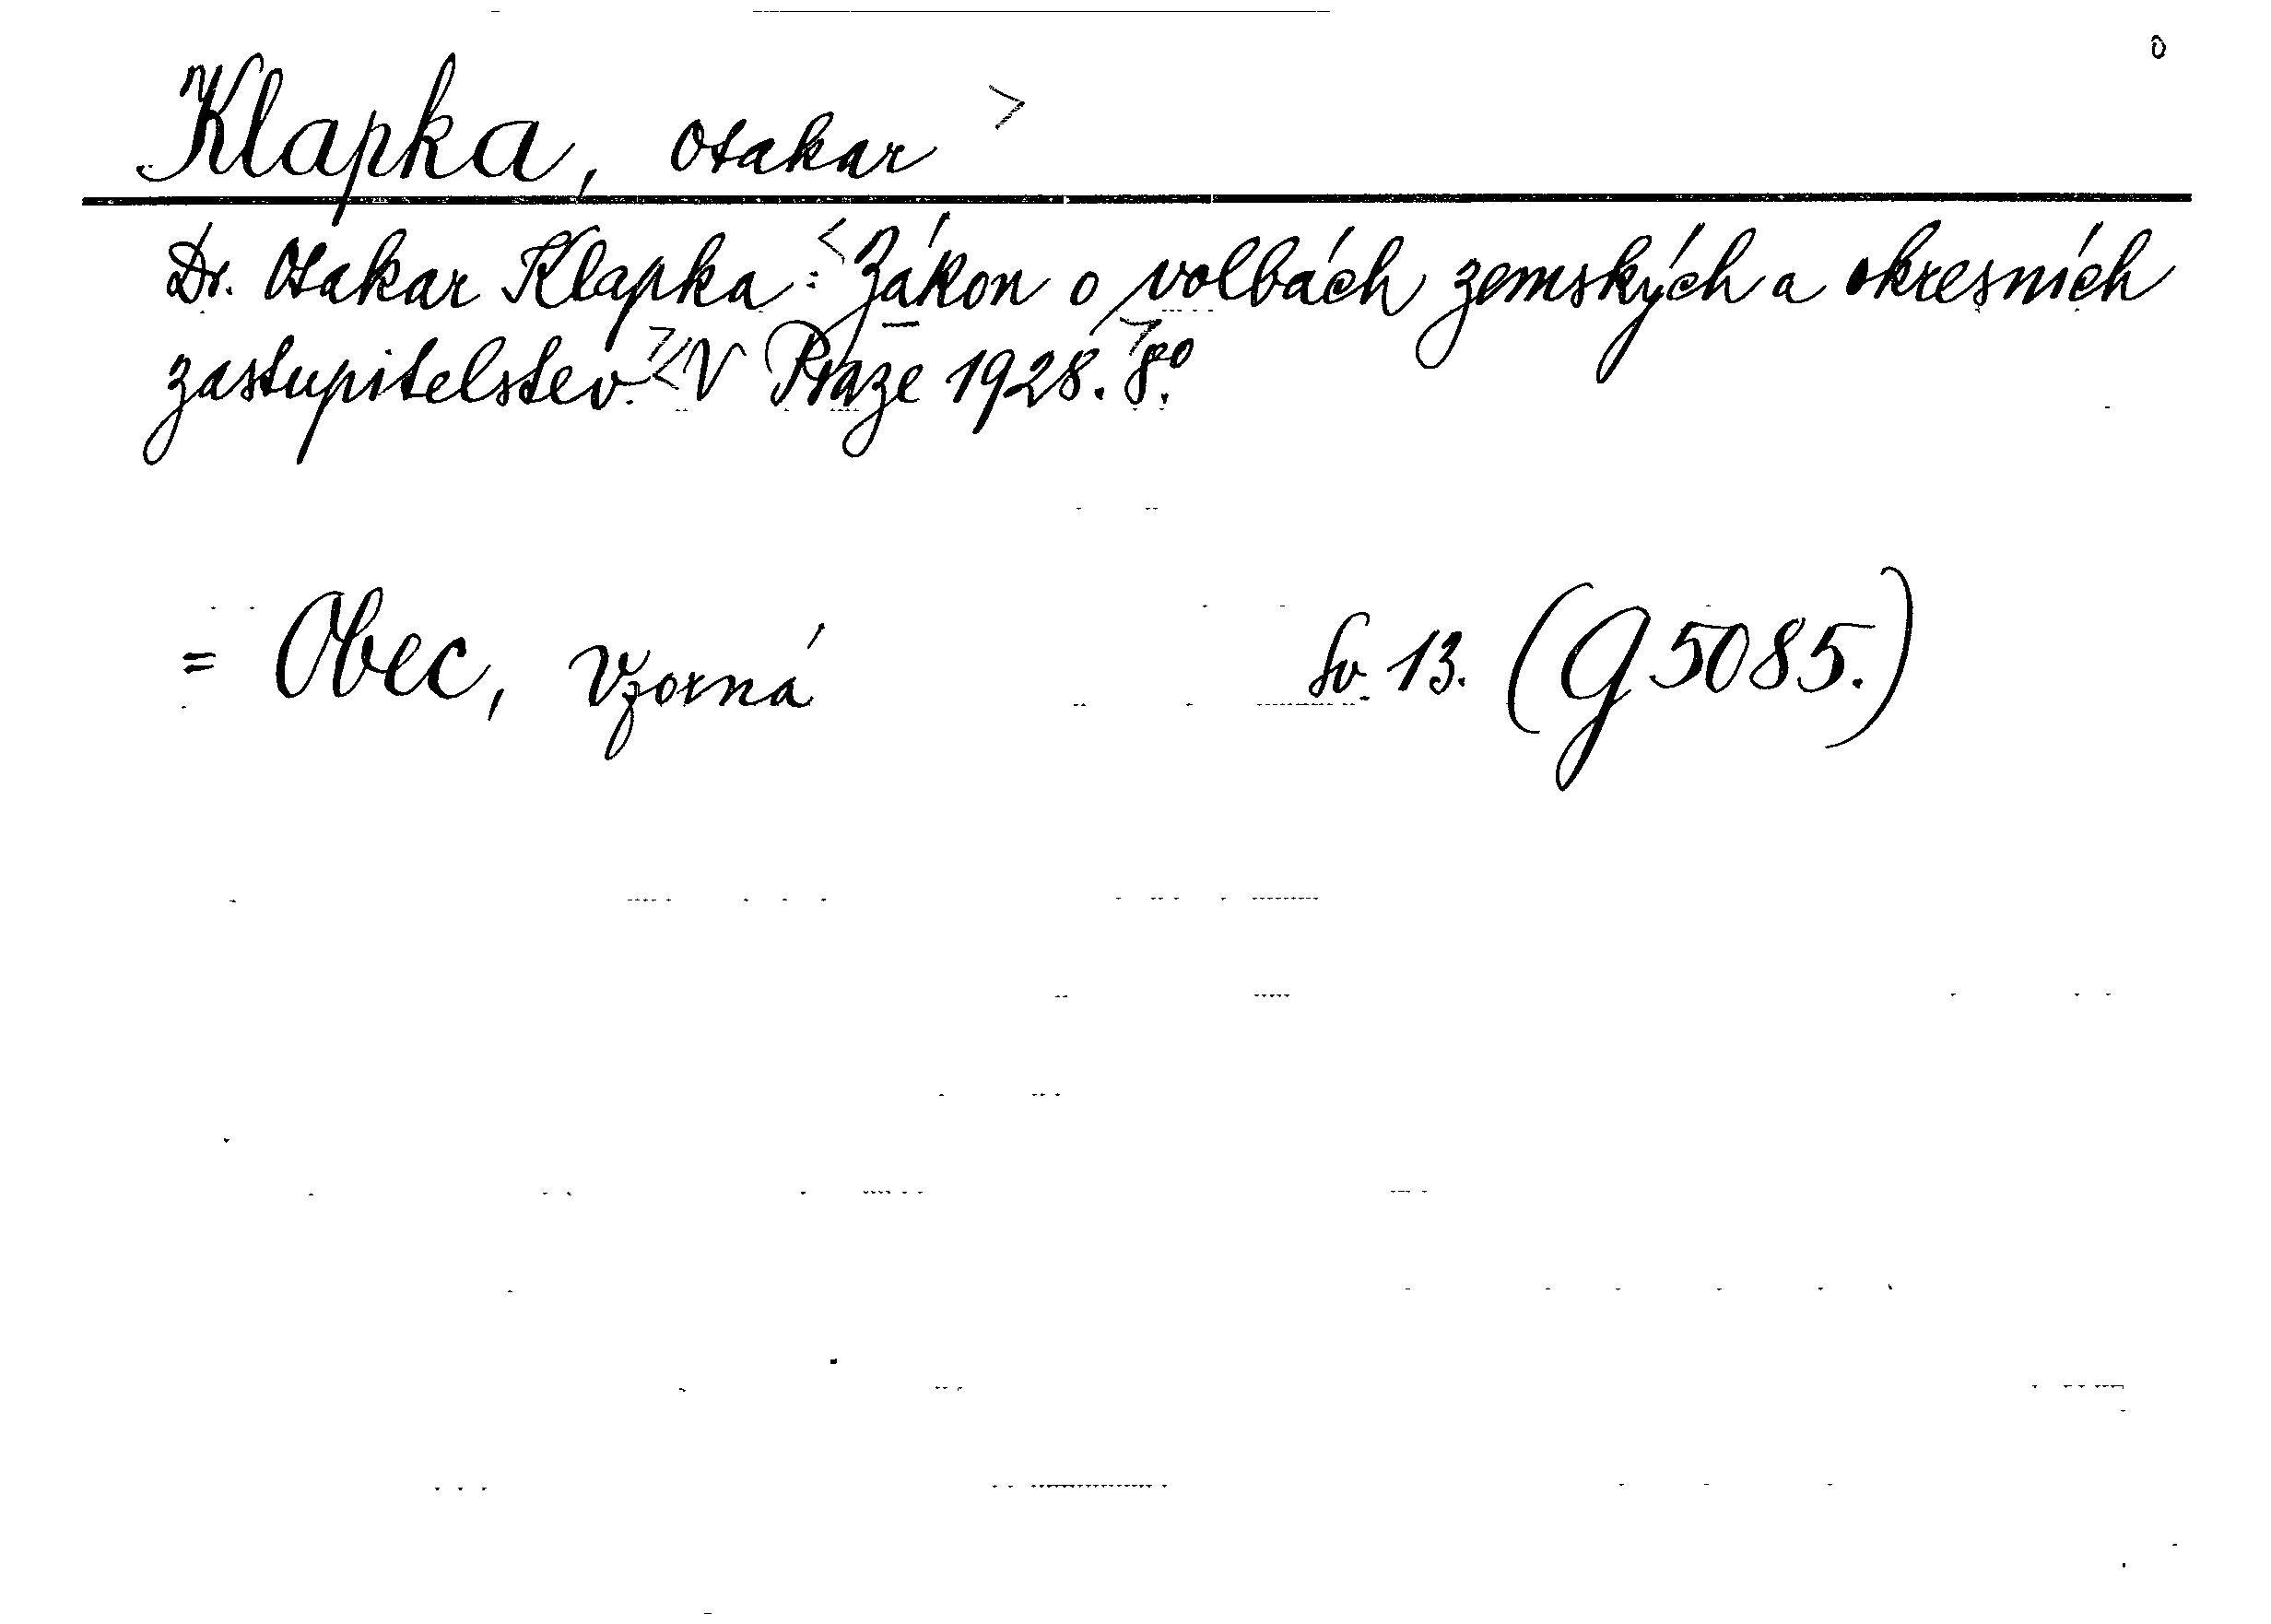 Klapka, Otakar >
Dr. Otakar Klapka: <Zákon o volbách zemských a okresních
zastupitelstev.> <V Praze 1928.> 8º.
= Obec, vzorná Sv. 13. (G 5085.)